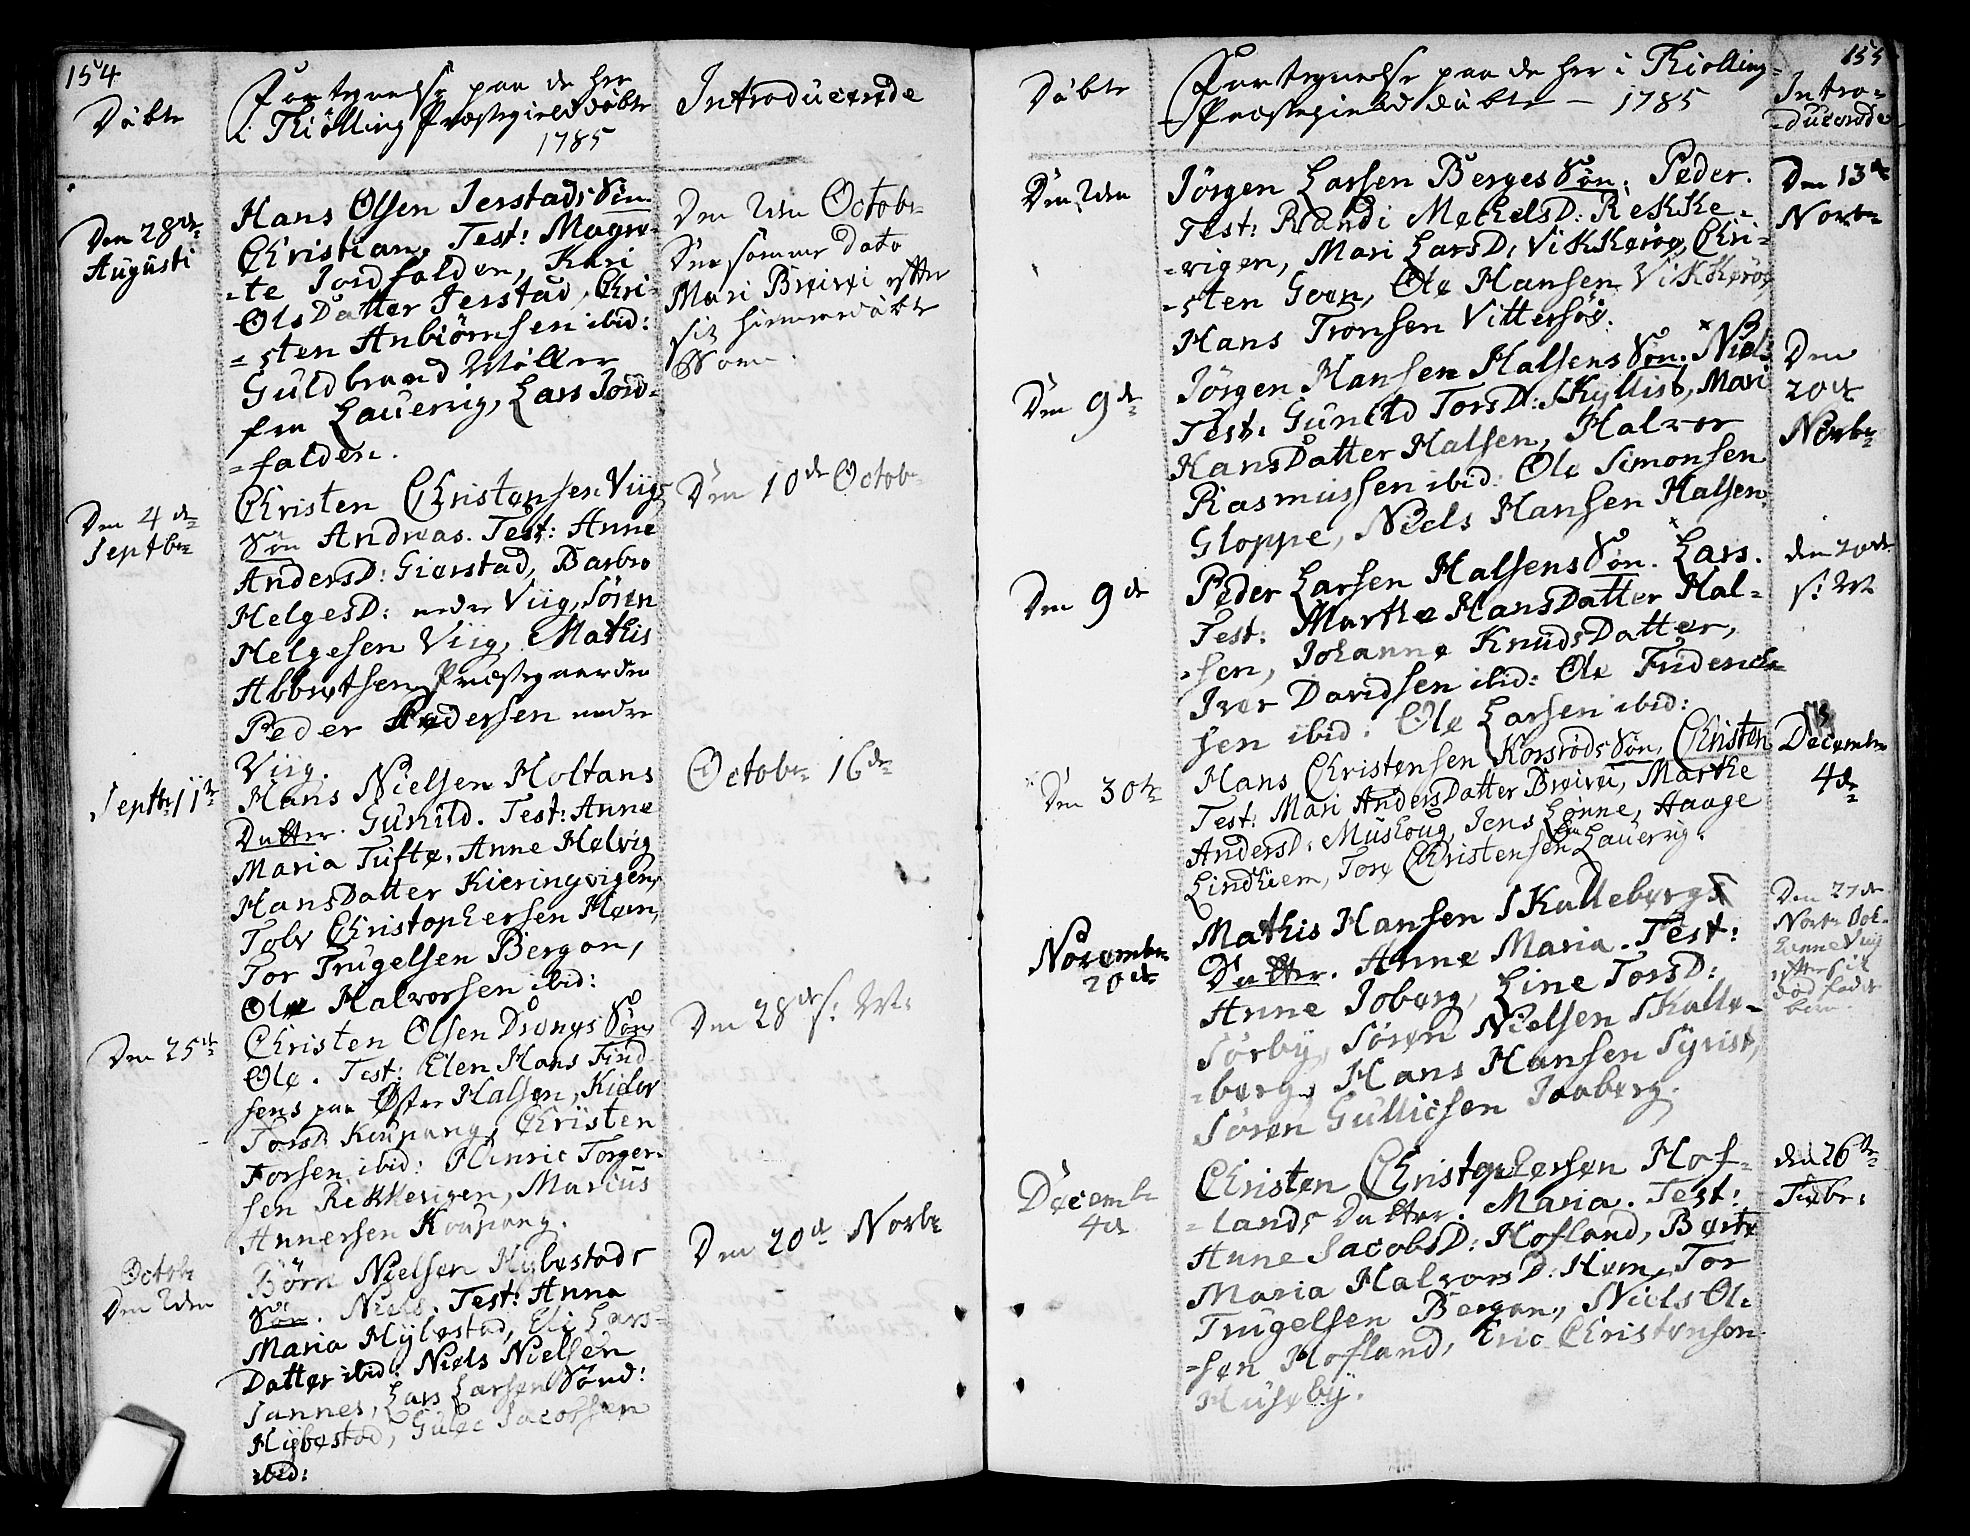 154
Döbte
Fortegnelse paa de her
i Thiölling Præstegield döbte
1785
Introducerede
Den 28de
Augusti
Hans Olsen Jerstads Sön
Christian. Test: Magre-
-te Jordfalden, Kari
OlsDatter Jerstad, Chri-
-sten Anbiörnsen ibid:
Guldbrand Möller
fra Lauerrig, Lars Jord-
-falden.
Den 2den Octobr
Den samme Dato
Mari Breivei efter
sit hiemmedöbte
Den 4de
Septbr
Christen Christensen Viigs
Sön Andreas. Test: Anne
AndersD: Gierstad, Barbro
HelgesD: nedre Viig, Sören
Helgesen Viig, Mathis
Abbretsen Præstegaarden
Peder Pedersen nedre
Viig.
Den 10de Octobr
Septbr 11te
Hans Nielsen Holtans
Datter. Gunild. Test: Anne
Maria Tufte, Anne Helvig
HansDatter Kieringvigen,
Tolv Christophersen Hem,
Tor Trugelsen Bergan,
Ole Halvorsen ibid:
Octobr 16de
Den 25de
Christen Olsen Drongs Sön
Ole. Test: Elen Hans Find
sens paa Öster Halsen, Kider
TorsD: Kaupang, Christen
Torsen ibid: Hinric Torger-
sen Rekkevigen, Marcus
Annersen Kaupang.
Den 28de s: M:
Octobr
Den 2den
Börn Nielsen Hybestads
Sön. Niels. Test: Anna
Maria Hybestad, Eli Lars-
Datter ibid: Niels Nielsen
Sannes, Lars Larsen Sönd:
Hybestad, Gulec Jacobsen
ibid:
Den 20de Novbr
155
Döbte
Fortegnelse paa de her i Thiölling-
-Præstegield döbte - 1785
Intro-
-ducerede
Den 2den
Jörgen Larsen Berges Sön: Peder.
Test: Randi MechelsD: Rekke-
-vigen, Mari LarsD: Vikkeröe, Chri-
-sten Goen, Ole Hansen Vikkeröe
Hans Tronsen Vittersöe.
Den 13de
Novbr
Den 9de
Jörgen Hansen Halsens Sön. Niels
Test: Gunild TorsD: Skyllisö, Mari
HansDatter Halsen, Halvor
Rasmussen ibid: Ole Simonsen
Gloppe, Niels Hansen Halsen.
Den
20de
Novbr
Den 9de
Peder Larsen Halsens Sön. Lars.
Test: Marthe HansDatter Hal-
-sen, Johanne KnudsDatter,
Iver Davidsen ibid: Ole Fridenck-
sen ibid: Ole Larsen ibid:
den 20de
s: M
Den 30te
Hans Christensen Korsröds Sön, Christen
Test: Mari AndersDatter Breivei, Marthe
AndersD: Muskoug, Jens Lönne, Haage
Lindhiem, Tore Christensen Lauerrig.
Decembr
4de
Novembr
20de
Mathis Hansen Skallebergs
Datter. Anne Maria. Test:
Anne Joberg, Line TorsD:
Sörby, Sören Nielsen Skalle-
-berg, Hans Hansen Syrist,
Sören Gullicsen Joaberg.
Den 27de
Novbr
Viig
efter sit
död föd
barn
Decembr
4de
Christen Christophersen Hof-
-lands Datter. Maria. Test:
Anne JacobsD: Hofland, Berte
Maria HalvorsD: Hem, Tor
Trugelsen Bergan, Niels Ol-
-sen Hofland, Eric Christensen
Huseby.
den 26de
Febr: